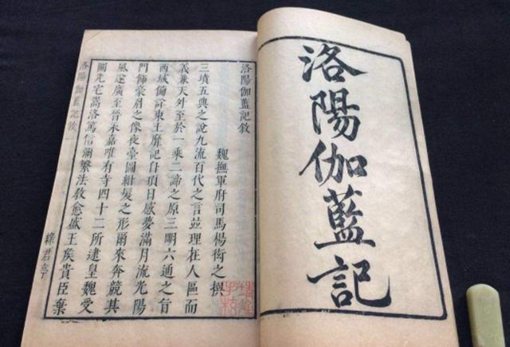 洛陽伽藍記
洛陽伽藍記敘
魏撫軍府司馬楊衒之撰
三墳五典之說九流百代之言並理在人區而
義兼天外至於一乘二諦之原三明六通之旨
西域備詳東土靡記自頂日感夢滿月流光陽
門飾豪眉之像夜臺圖紺髮之形爾來奔競其
風遂廣至晉永嘉唯有寺四十二所逮皇魏受
圖光宅嵩洛篤信彌繁法教愈盛王矦貴臣棄
洛陽伽藍記敘
綠君亭